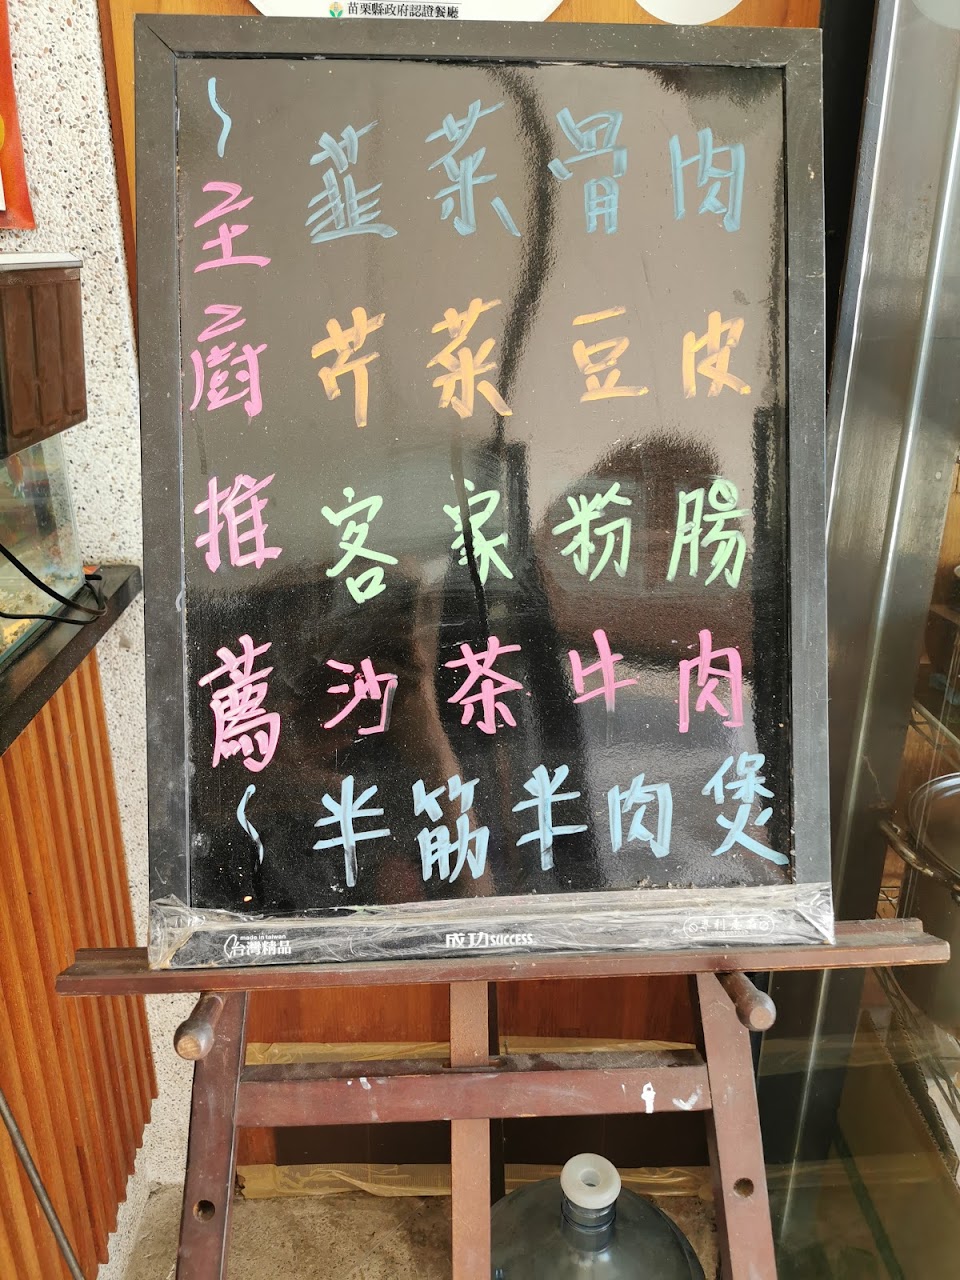 苗栗縣政府認證餐廳
～主廚推薦～
韮菜骨肉
芹菜豆皮
客家粉腸
沙茶牛肉
半筋半肉煲
made in taiwan
台灣精品
成功 SUCCESS
專利產品